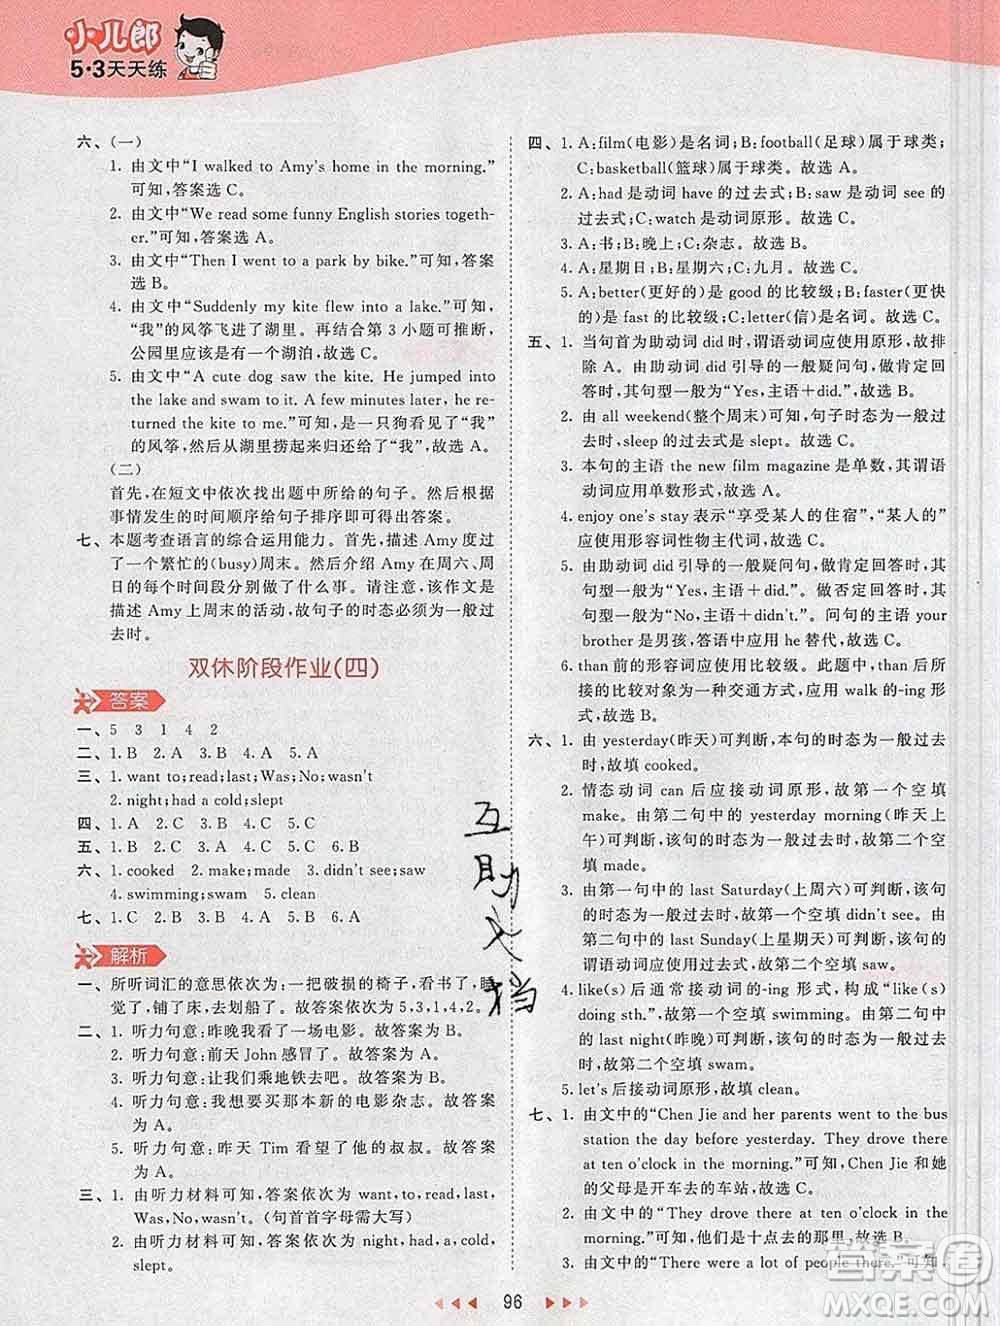 小儿郎
5·3天天练
六、(一)
1. 由文中“I walked to Amy's home in the morning.”
可知,答案选 C。
2. 由文中“We read some funny English stories togeth-
er.”可知,答案选 A。
3. 由文中“Then I went to a park by bike.”可知,答案
选 A。
4. 由文中“Suddenly my kite flew into a lake.”可知,
“我”的风筝飞进了湖里。再结合第 3 小题可推断,
公园里应该是有一个湖泊,故选 C。
5. 由文中“A cute dog saw the kite. He jumped into
the lake and swam to it. A few minutes later, he re-
turned the kite to me.”可知,是一只狗看见了“我”
的风筝,然后从湖里捞起来归还给了“我”,故选 A。
(二)
首先,在短文中依次找出题中所给的句子。然后根据
事情发生的时间顺序给句子排序即可得出答案。
七、本题考查语言的综合运用能力。首先,描述 Amy 度过
了一个繁忙的(busy)周末。然后介绍 Amy 在周六、周
日的每个时间段分别做了什么事。请注意,该作文是
描述 Amy 上周末的活动,故句子的时态必须为一般过
去时。
双休阶段作业(四)
答案
一、5 3 1 4 2
二、1. B 2. A 3. B 4. A 5. A
三、1. want to; read; last; Was; No; wasn't
2. night; had a cold; slept
四、1. A 2. C 3. B 4. C 5. C
五、1. B 2. C 3. A 4. A 5. C 6. B
六、1. cooked 2. make; made 3. didn't see; saw
4. swimming; swam 5. clean
七、1. C 2. B 3. C 4. B 5. A
解析
一、所听词汇的意思依次为:一把破损的椅子,看书了,睡
觉了,铺了床,去划船了。故答案依次为5,3,1,4,2。
二、1. 听力句意:昨晚我看了一场电影。故答案为 B。
2. 听力句意:前天 John 感冒了。故答案为 A。
3. 听力句意:让我们乘地铁去吧。故答案为 B。
4. 听力句意:我想要买那本新的电影杂志。故答案
为 A。
5. 听力句意:昨天 Tim 看望了他的叔叔。故答案
为 A。
三、1. 由听力材料可知,答案依次为 want,to,read,last,
Was,No,wasn't。(句首首字母需大写)
2. 由听力材料可知,答案依次为 night,had,a,cold,
slept。
四、1. A:film(电影)是名词;B:football(足球)属于球类;
C:basketball(篮球)属于球类。故选 A。
2. A:had 是动词 have 的过去式;B:saw 是动词 see 的
过去式;C:watch 是动词原形。故选 C。
3. A:书;B:晚上;C:杂志。故选 B。
4. A:星期日;B:星期六;C:九月。故选 C。
5. A:better(更好的)是 good 的比较级;B:faster(更快
的)是 fast 的比较级;C:letter(信)是名词。故选 C。
五、1. 当句首为助动词 did 时,谓语动词应使用原形,故排
除 A。由助动词 did 引导的一般疑问句,做肯定回
答时,其句型一般为“Yes,主语+did.”,故选 B。
2. 由 all weekend(整个周末)可知,句子时态为一般过
去时,sleep 的过去式是 slept。故选 C。
3. 本句的主语 the new film magazine 是单数,其谓语
动词应用单数形式,故选 A。
4. enjoy one's stay 表示“享受某人的住宿”,“某人的”
应使用形容词性物主代词。故选 A。
5. 由助动词 did 引导的一般疑问句,做肯定回答时,其
句型一般为“Yes,主语+did.”。做否定回答时,其
句型一般为“No,主语+didn't.”。问句的主语 your
brother 是男孩,答语中应用 he 替代,故选 C。
6. than 前的形容词应使用比较级。此题中,than 后所
接的比较对象为一种交通方式,应用 walk 的-ing 形
式,故选 B。
六、1. 由 yesterday(昨天)可判断,本句的时态为一般过去
时,故填 cooked。
2. 情态动词 can 后应接动词原形,故第一个空填
make。由第二句中的 yesterday morning(昨天上
午)可判断,该句的时态为一般过去时,故第二个空
填 made。
3. 由第一句中的 last Saturday(上周六)可判断,该句
的时态为一般过去时,故第一个空填 didn't see。由
第二句中的 last Sunday(上星期天)可判断,该句的
谓语动词应使用过去式,故第二个空填 saw。
4. like(s)后通常接动词的-ing 形式,构成“like(s)
doing sth.”,故第一个空填 swimming。由第二句中
的 last night(昨晚)可知,该句的时态为一般过去
时,故第二个空填 swam。
5. let's 后接动词原形,故填 clean。
七、1. 由文中的“Chen Jie and her parents went to the bus
station the day before yesterday. They drove there
at ten o'clock in the morning.”可知,Chen Jie 和她
的父母是开车去的车站,故选 C。
2. 由文中的“They drove there at ten o'clock in the
morning.”可知,他们是十点去的车站,故选 B。
3. 由文中的“There were a lot of people there.”可知,
互助文档
答案圈
MXQE.COM
96